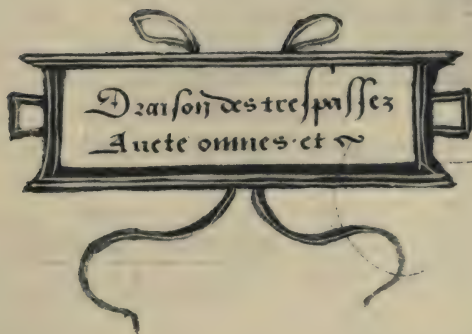 Oraison des trespassez
Auete omnes· et ~